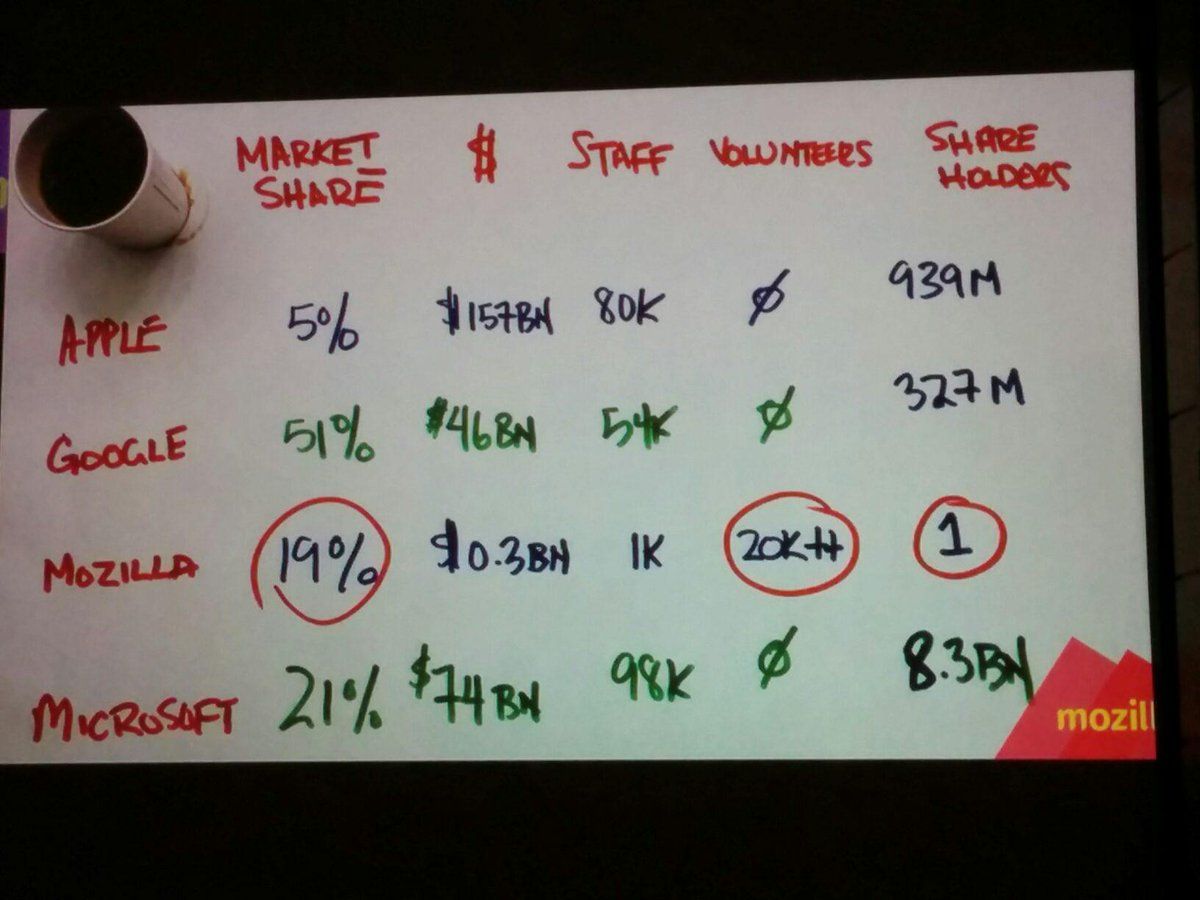 MARKET SHARE $ STAFF VOLUNTEERS SHARE HOLDERS
APPLE 5% $157BN 80K Ø 939M
GOOGLE 51% $46BN 54K Ø 327M
MOZILLA 19% $0.3BN 1K 20K++ 1
MICROSOFT 21% $74BN 98K Ø 8.3BN
mozill